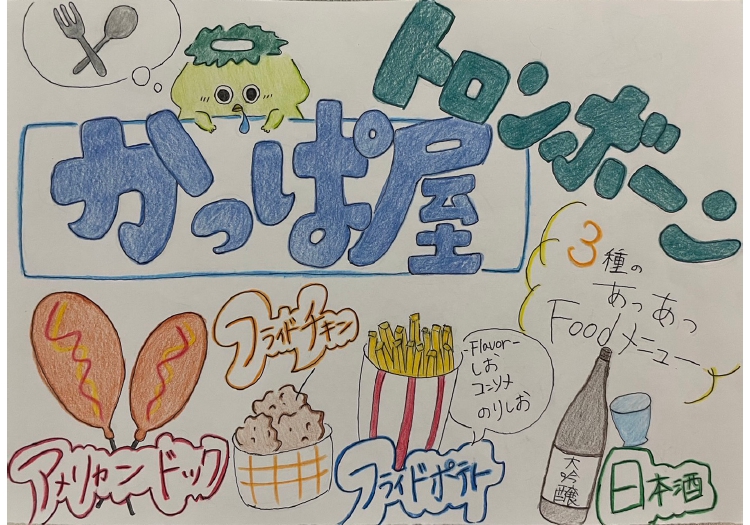 トロンボーン
かっぱ屋
3種の
あつあつ
Foodメニュー
フライドチキン
-Flavor-
しお
コンソメ
のりしお
アメリカンドック
フライドポテト
大吟醸
日本酒